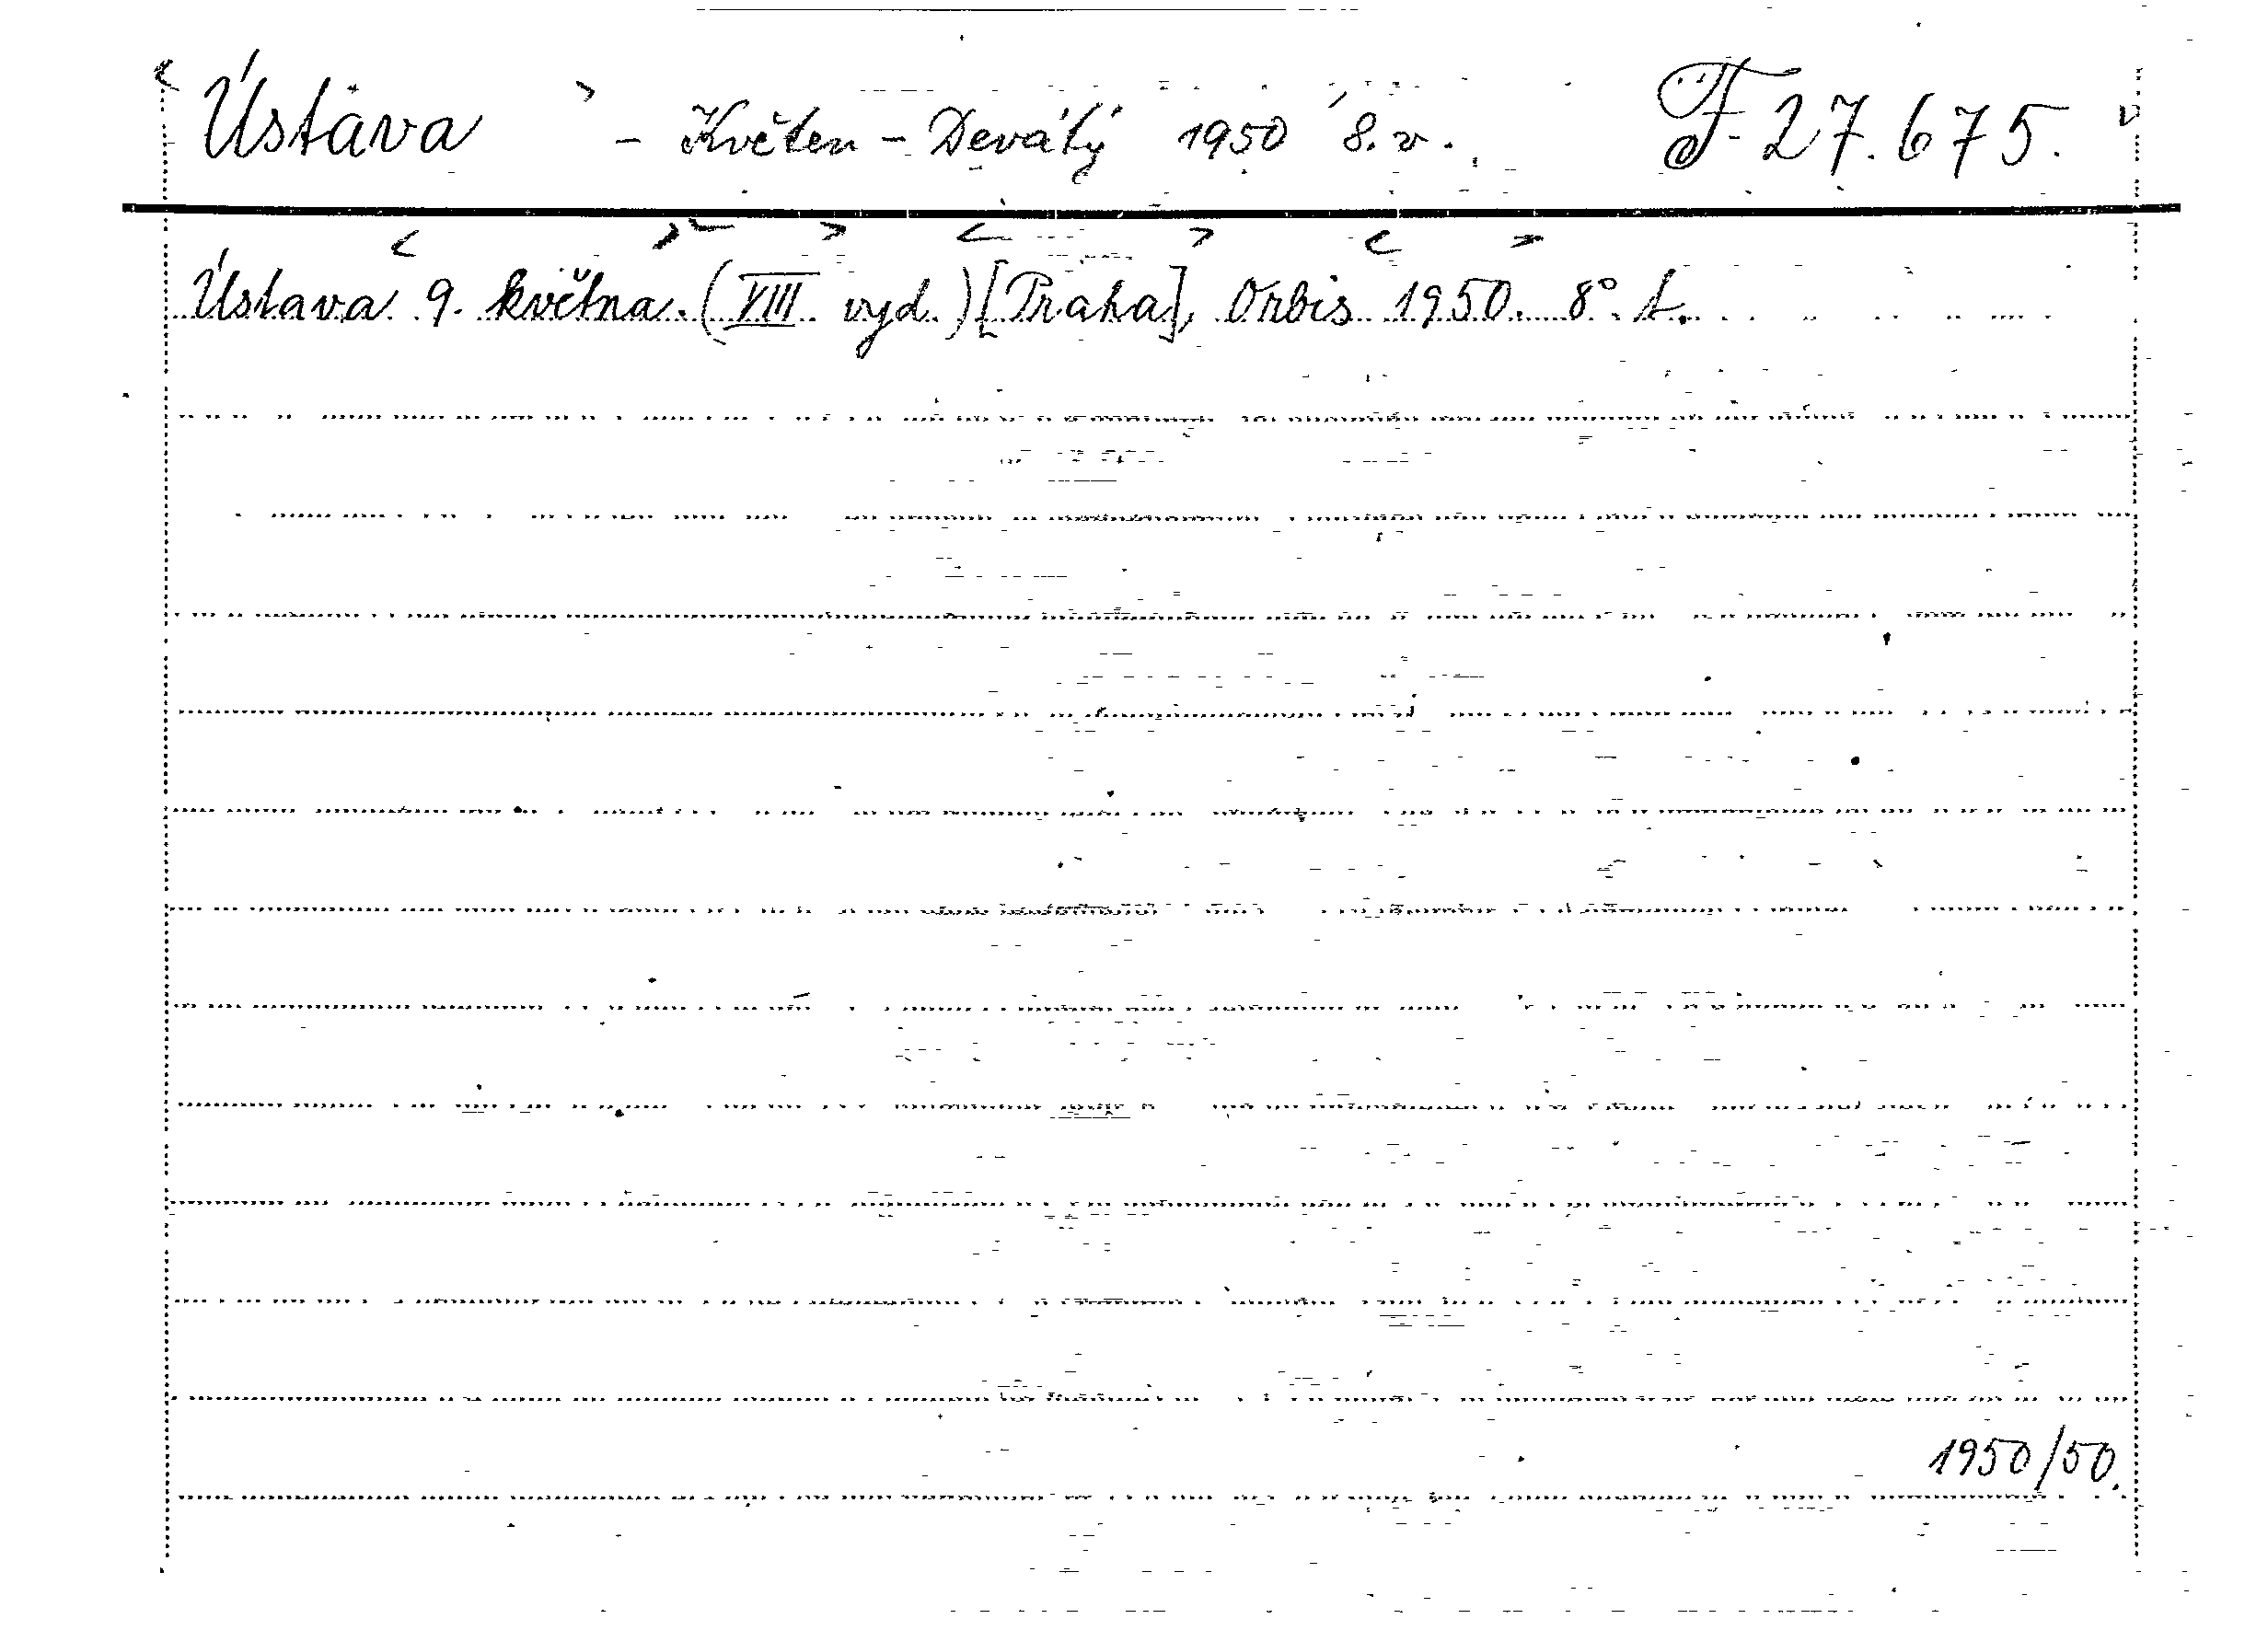 Ústava - Květen - Devátý 1950 8. v. F 27.675.
Ústava 9. května. (VIII vyd.) [Praha], Orbis 1950. 8°.
1950/50.